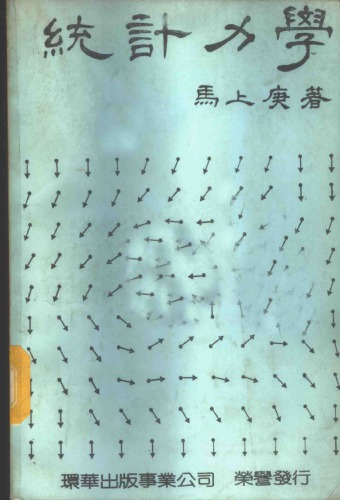 統計力學
馬上庚著
環華出版事業公司 榮譽發行